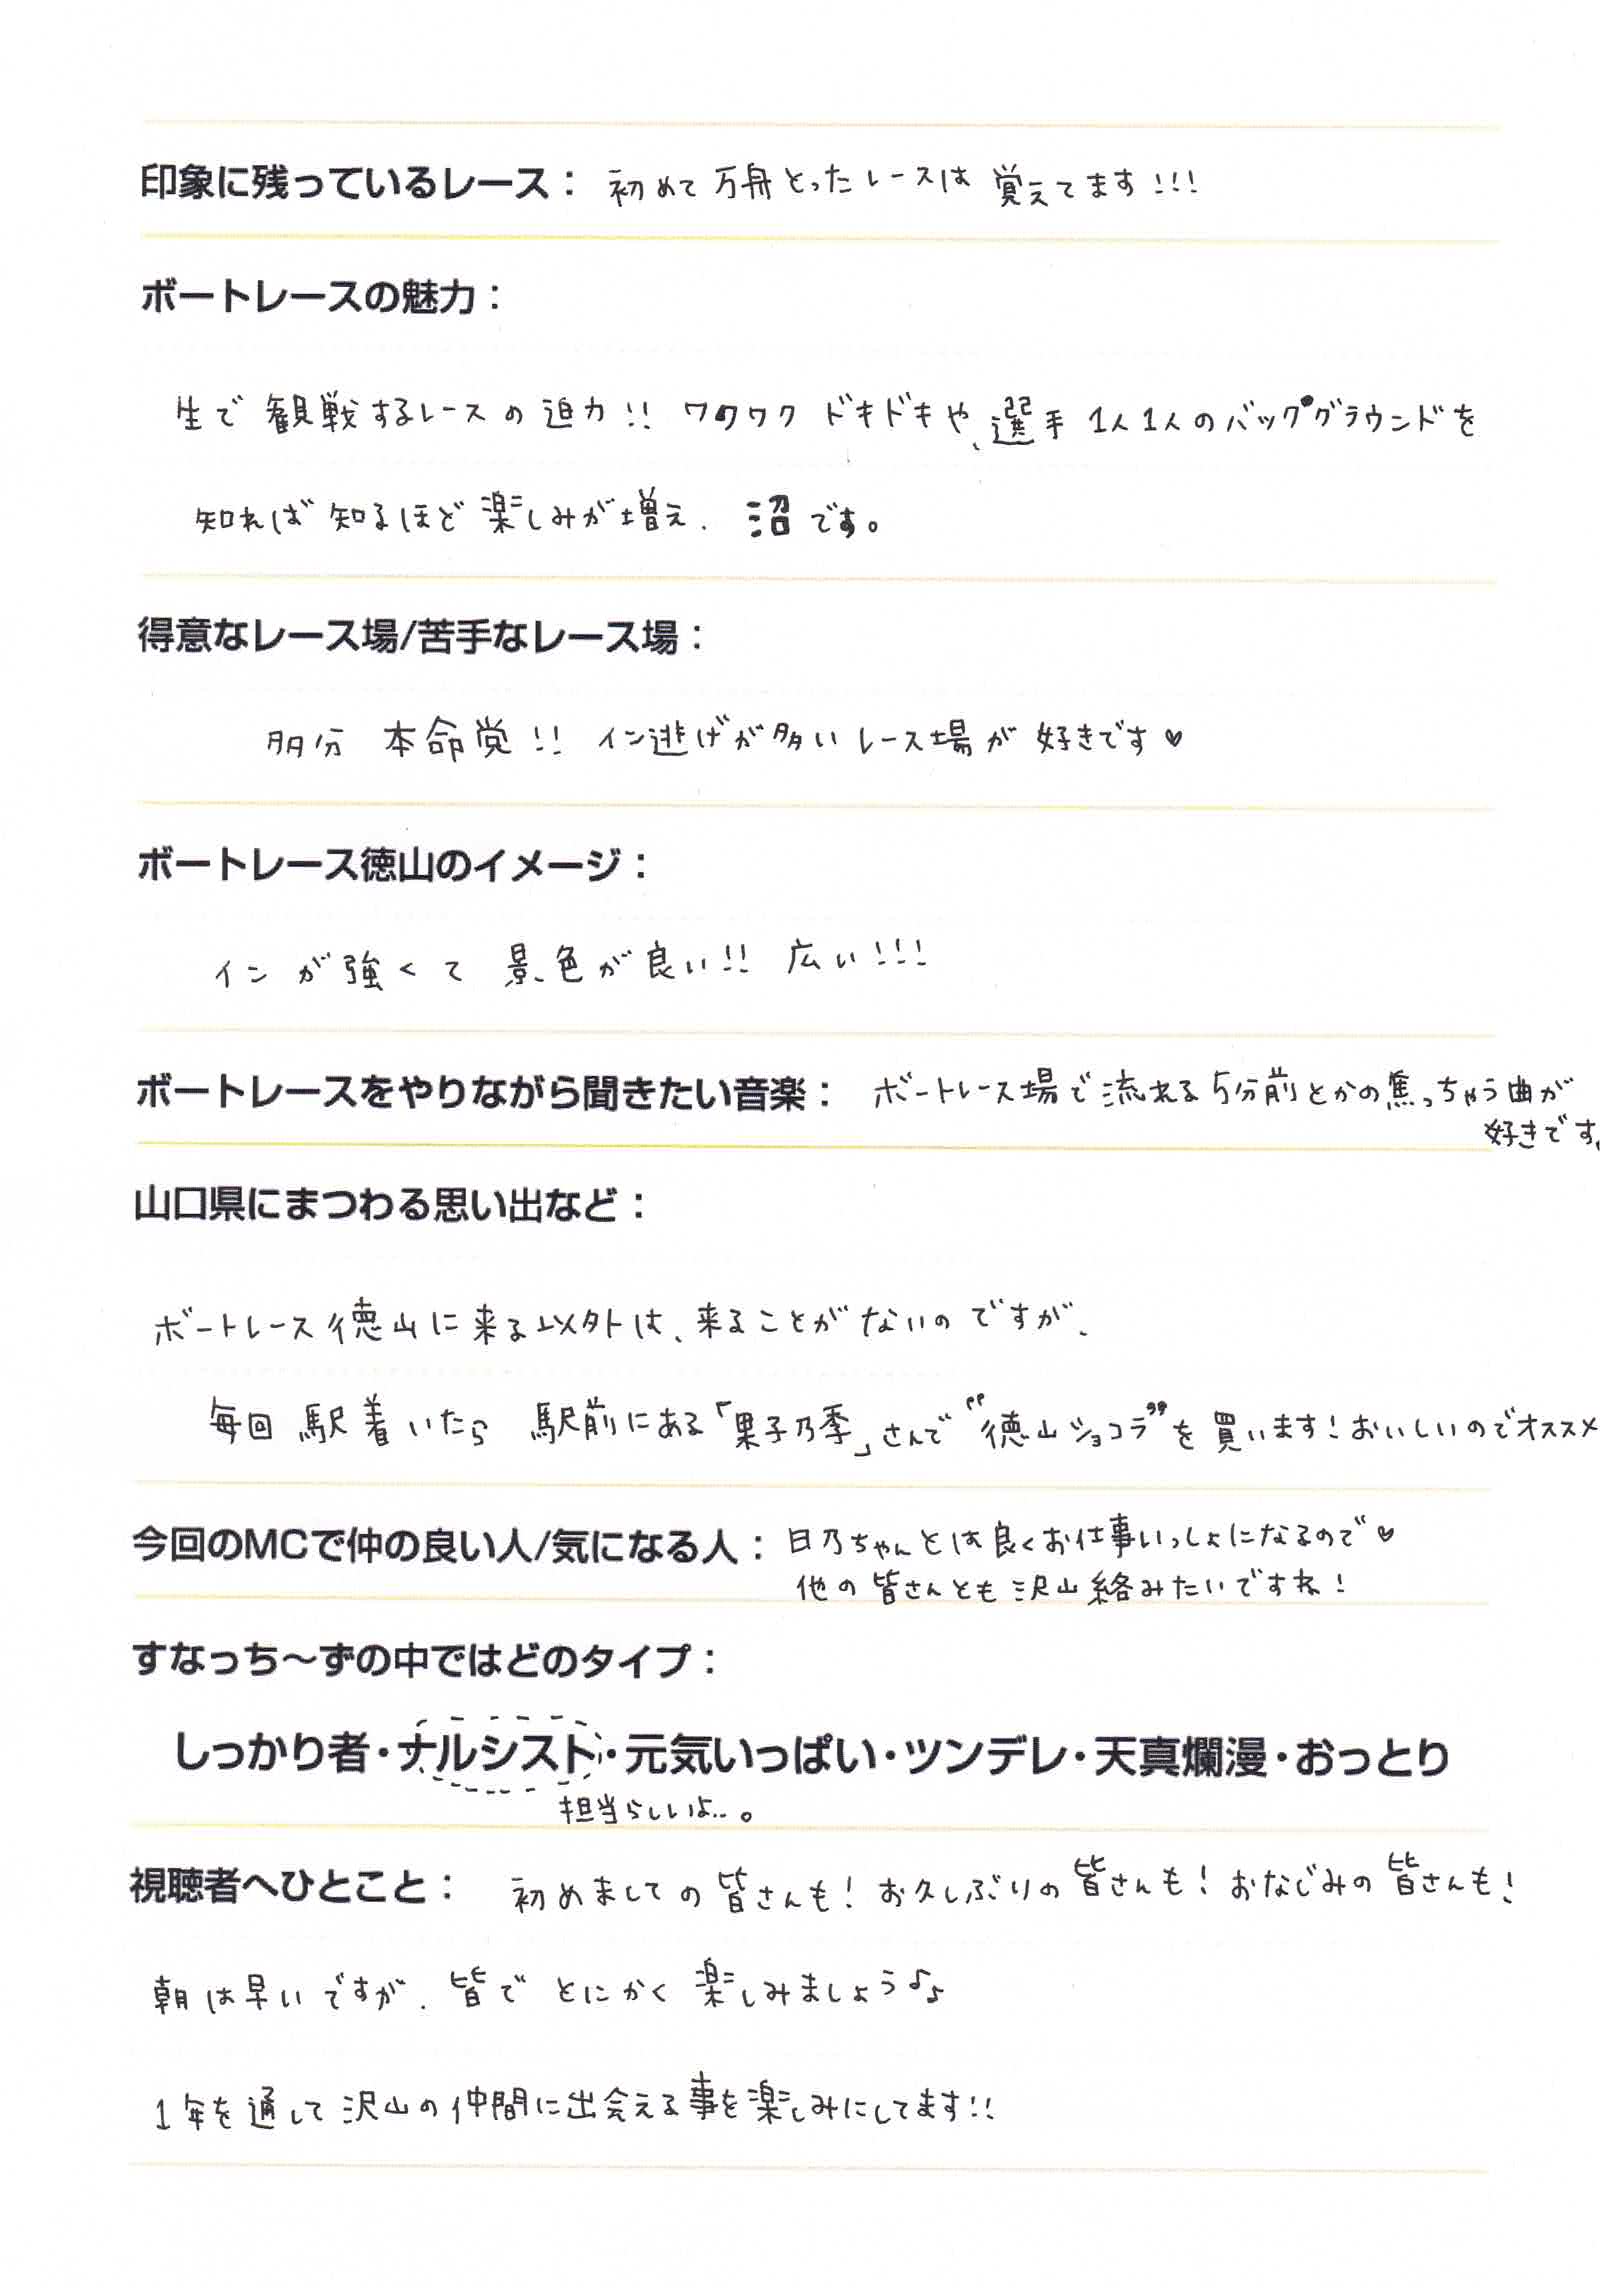 印象に残っているレース： 初めて万舟とったレースは 覚えてます!!!
ボートレースの魅力：
生で観戦するレースの迫力!! ワクワクドキドキや、選手1人1人のバックグラウンドを
知れば知るほど楽しみが増え、沼です。
得意なレース場/苦手なレース場：
多分 本命党!! イン逃げが多いレース場が 好きです♥
ボートレース徳山のイメージ：
インが強くて 景色が良い!! 広い!!!
ボートレースをやりながら聞きたい音楽： ボートレース場で流れる5分前とかの焦っちゃう曲が
好きです。
山口県にまつわる思い出など：
ボートレース徳山に来る以外は、来ることがないのですが、
毎回 駅着いたら 駅前にある「果子乃季」さんで“徳山ショコラ”を買います!おいしいのでオススメ
今回のMCで仲の良い人/気になる人： 日乃ちゃんとは良くお仕事いっしょになるので♥
他の皆さんとも沢山絡みたいですね!
すなっち～ずの中ではどのタイプ：
しっかり者・ナルシスト・元気いっぱい・ツンデレ・天真爛漫・おっとり
担当らしいよ…。
視聴者へひとこと： 初めましての皆さんも! お久しぶりの皆さんも! おなじみの皆さんも!
朝は早いですが、皆で とにかく楽しみましょう♪♪
1年を通して沢山の仲間に出会える事を楽しみにしてます!!